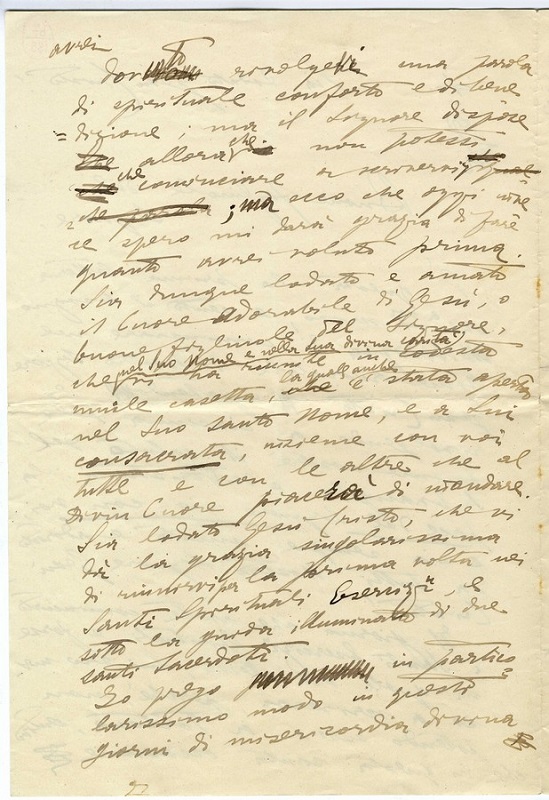 avrei
dovuto rivolgervi una parola
di spirituale conforto e di bene
=dizione; ma il Signore dispose
allora che non potessi
che cominciare a scrivervi
; ma ecco che oggi
ce spero mi darà grazia di fare
quanto avrei voluto prima.
Sia dunque lodato e amato
il Cuore adorabile di Gesù, o
buone figliuole del Signore,
nel Suo Nome e nella Sua divina carità,
che vi ha riunite in codesta
la quale anche
umile casetta, è stata aperta
nel Suo santo Nome, e a Lui
consacrata, insieme con voi
tutte e con le altre che al
Divin Cuore piacerà di mandare.
Sia lodato Gesù Cristo, che vi
dà la grazia singolarissima
di riunirvi per la prima volta nei
Santi Spirituali Esercizi, e
sotto la guida illuminata di due
santi Sacerdoti
Io prego in partico=
larissimo modo in questi
giorni di misericordia divina